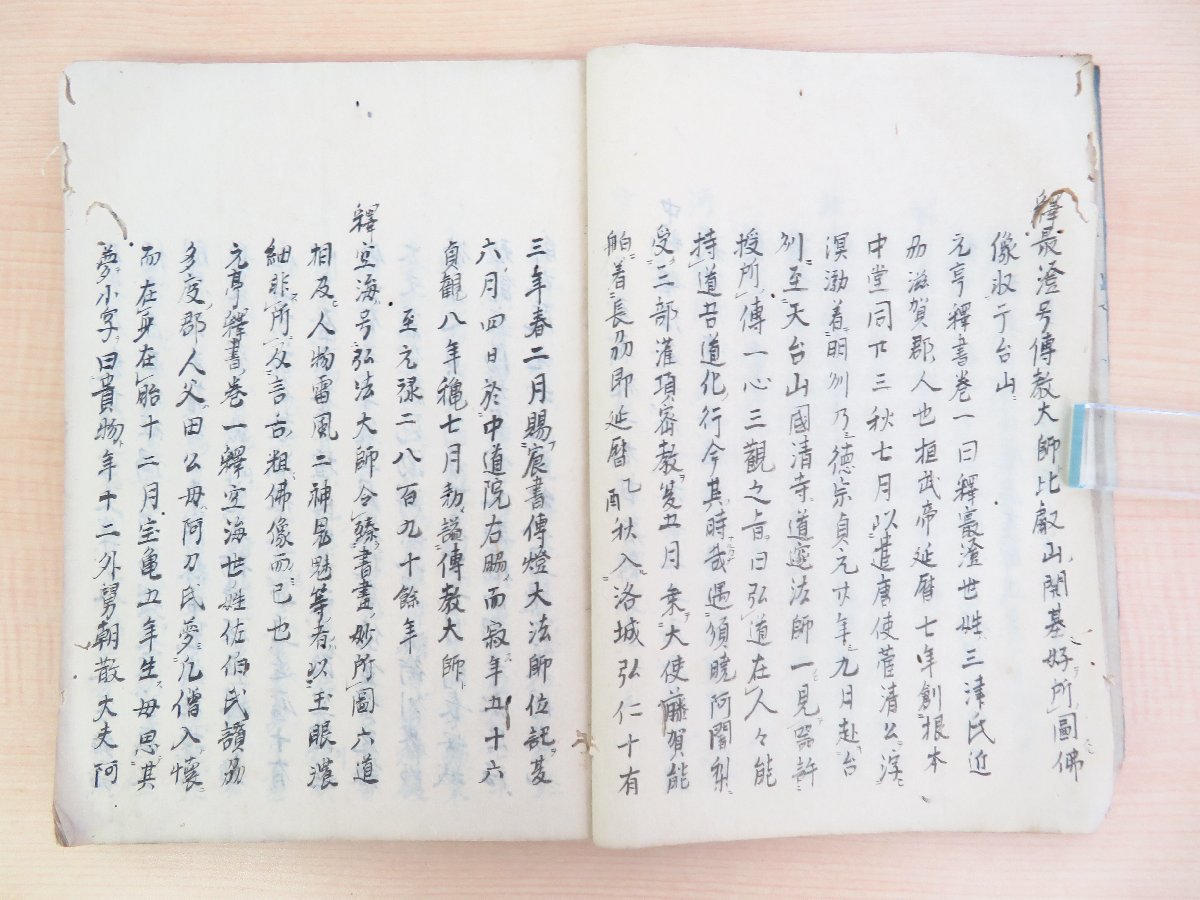 釋最澄号傳教大師比叡山開基好所圖佛
像収于台山
元亨釋書卷一曰釋最澄世姓三津氏近
刕滋賀郡人也桓武帝延暦七年創根本
中堂同廿三秋七月以遣唐使菅清公浮
溟渤着明州乃德宗貞元廾年九日赴台
州至天台山國清寺道邃法師一見器許
授所傳一心三觀之旨曰弘道在人々能
持道吾道化行今其時哉遇順曉阿闍梨
受三部灌頂密教夏五月乗大使藤賀能
舶着長刕即延暦乙酉秋入洛城弘仁十有
三年春二月賜宸書傳燈大法師位記夏
六月四日於中道院右賜而寂年五十六
貞觀八年龝七月勅謚傳教大師
至元禄二八百九十餘年
釋空海号弘法大師令臻書畫妙所圖六道
相及人物雷風二神鬼魅等有以玉眼濃
細非所及言舌粗佛像而已也
元亨釋書卷一釋空海世姓佐伯氏讃刕
多度郡人父田公母阿刀氏夢凡僧入懷
而在耴在胎十二月宝亀五年生母思其
夢小字曰貴物年十二外舅朝散大夫阿